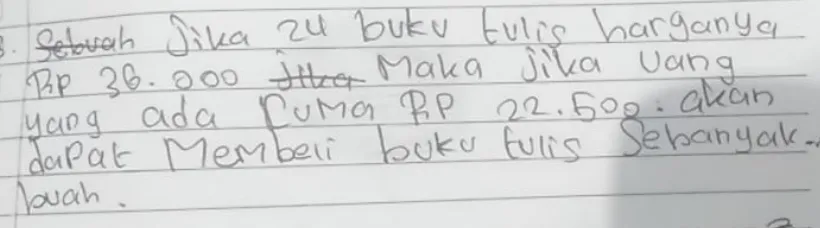 3. Sebuah Jika 24 buku tulis harganya
Rp 36.000 Jika Maka jika uang
yang ada cuma Rp 22.500. akan
dapat Membeli buku tulis Sebanyak..
buah.